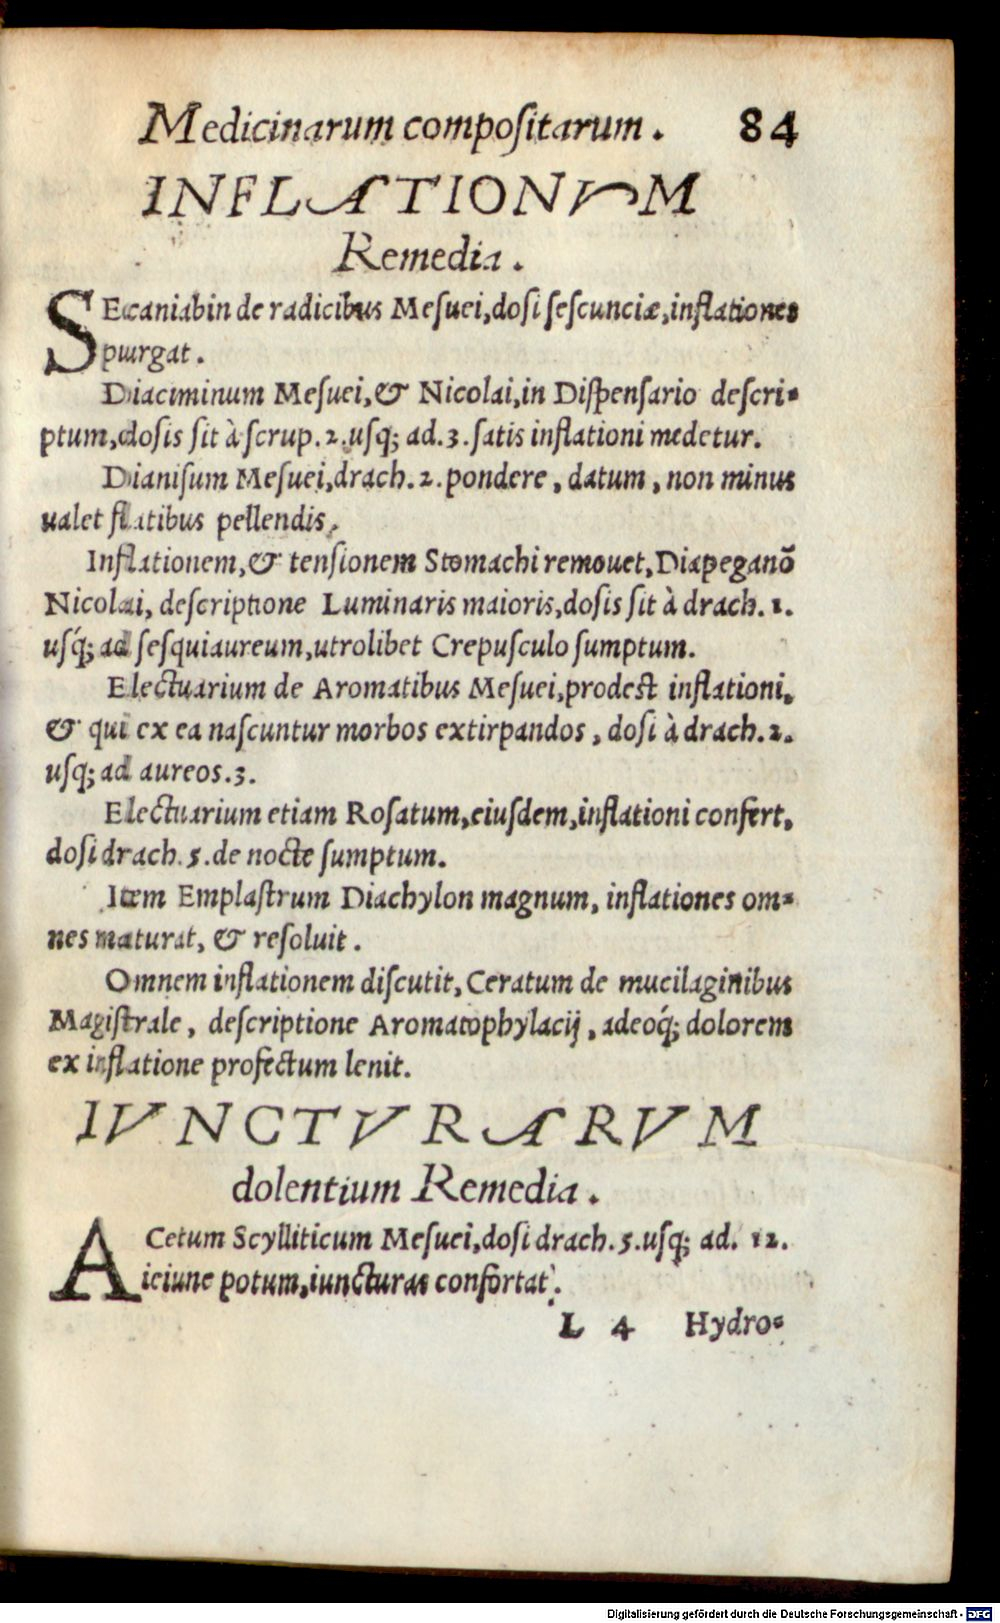 Medicinarum compositarum. 84
INFLATIONVM
Remedia.
SEcaniabin de radicibus Mesuei, dosi sescunciæ, inflationes
purgat.
Diaciminum Mesuei, & Nicolai, in Dispensario descri-
ptum, dosis sit à scrup. 2. usq; ad. 3. satis inflationi medetur.
Dianisum Mesuei, drach. 2. pondere, datum, non minus
ualet flatibus pellendis.
Inflationem, & tensionem Stomachi remouet, Diapeganõ
Nicolai, descriptione Luminaris maioris, dosis sit à drach. 1.
usq́; ad sesquiaureum, utrolibet Crepusculo sumptum.
Electuarium de Aromatibus Mesuei, prodest inflationi,
& qui ex ea nascuntur morbos extirpandos, dosi à drach. 2.
usq; ad aureos. 3.
Electuarium etiam Rosatum, eiusdem, inflationi confert,
dosi drach. 5. de nocte sumptum.
Item Emplastrum Diachylon magnum, inflationes om-
nes maturat, & resoluit.
Omnem inflationem discutit, Ceratum de mucilaginibus
Magistrale, descriptione Aromatophylacij, adeoq́; dolorem
ex inflatione profectum lenit.
IVNCTVRARVM
dolentium Remedia.
ACetum Scylliticum Mesuei, dosi drach. 5. usq; ad. 12.
ieiune potum, iuncturas confortat.
L 4 Hydro-
Digitalisierung gefördert durch die Deutsche Forschungsgemeinschaft - DFG